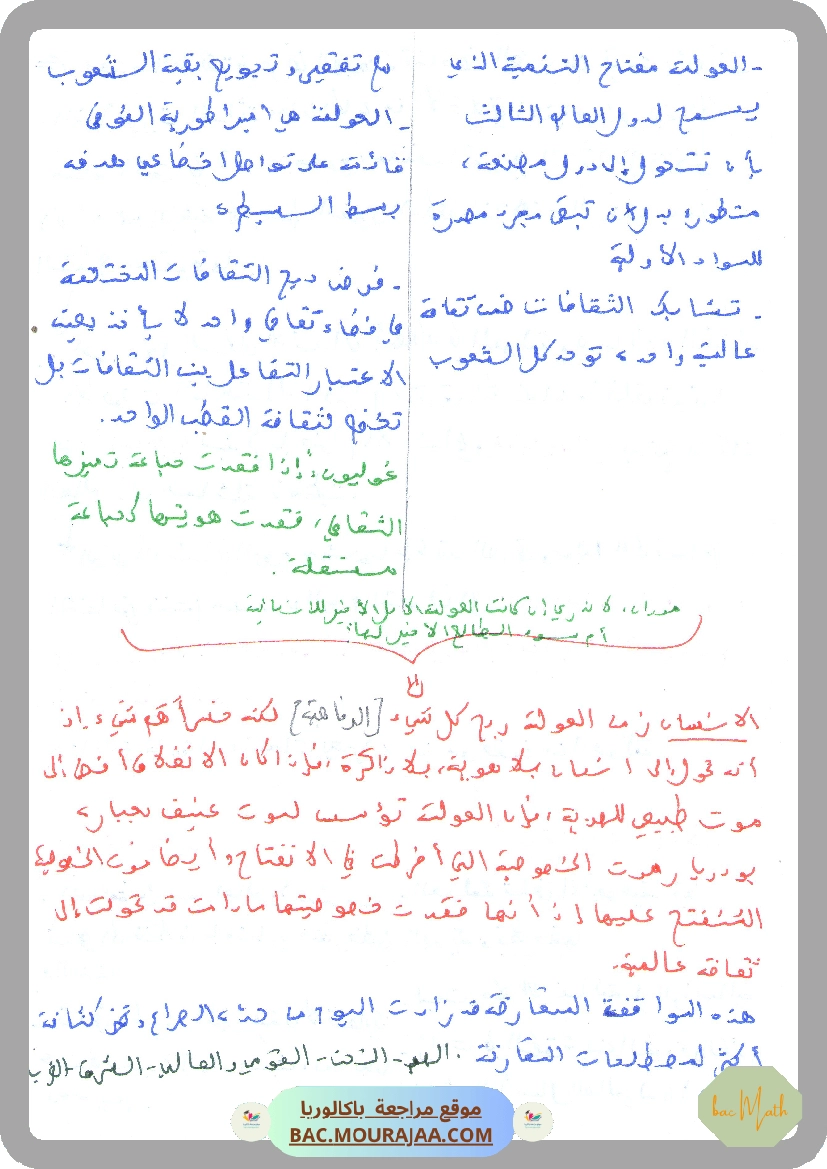 - العولمة مفتاح التنمية الذي
يسمح لدول العالم الثالث
بأن تتحول إلى دول مصنعة،
متطورة بدل أن تبقى مجرد مصدرة
للمواد الأولية
- تشابك الثقافات ضمن ثقافة
عالمية واحدة توحد كل الشعوب
مع تفقير وتجويع بقية الشعوب
- العولمة هي امبراطورية الفوضى
قائمة على تواصل افتراضي هدفه
بسط السيطرة
- فرض دمج الثقافات المختلفة
في فضاء ثقافي واحد لا يأخذ بعين
الاعتبار التفاعل بين الثقافات بل
تخضع لثقافة القطب الواحد.
غوليون: إذا فقدت جماعة تميزها
الثقافي، فقدت هويتها كجماعة
مستقلة.
موران: لا ندري إن كانت العولمة الأمل الأخير للإنسانية
أم سوء الطالع الأخير لها.
الإنسان زمن العولمة ربح كل شيء [الرفاهية] لكنه خسر أهم شيء إذ
أنه تحول إلى انسان بلا هوية، بلا ذاكرة، فإذا كان الانغلاق أفضى إلى
موت طبيعي للهوية، فإن العولمة تؤسس لموت عنيف بعبارة
بودريار موت الخصوصية التي أفرطت في الانفتاح وأيضا موت الخصوصية
المنفتح عليها إذ أنها فقدت خصوصيتها مادامت قد تحولت إلى
ثقافة عالمية.
هذه المواقف المتعارضة قد زادت اليوم من حدة الصراع و كثافة
أكثر لمصطلحات المقارنة. - النحن - القومي والعالمي - الشرق
موقع مراجعة باكالوريا
BAC.MOURAJAA.COM
bac Math